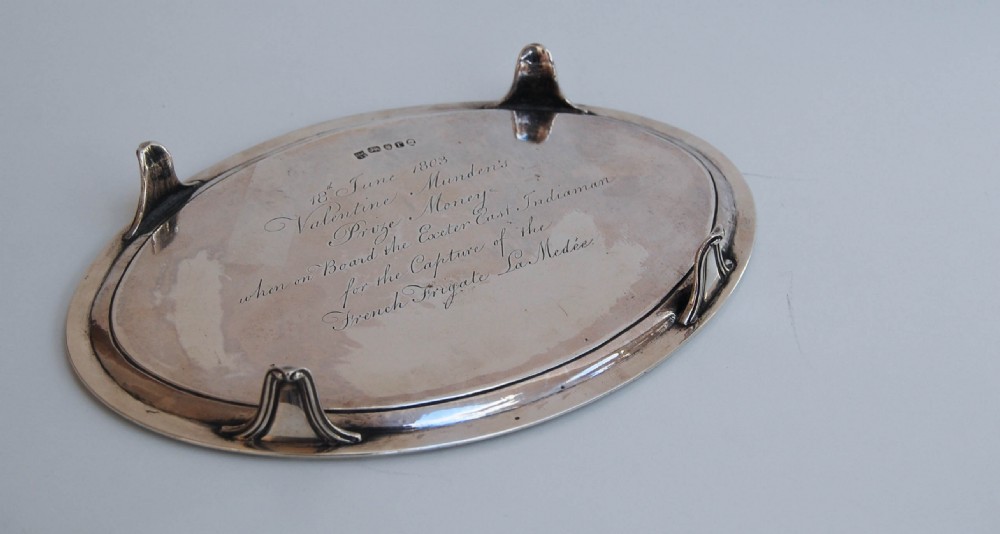 18th June 1803
Valentine Munden's
Prize Money
when on Board the Exeter East Indiaman
for the Capture of the
French Frigate La Medée.